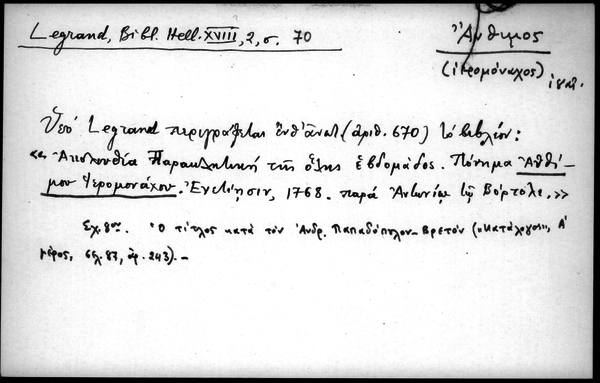 Legrand, Bibl. Hell. XVIII, 2, σ. 70
Ἄνθιμος
(ἱερομόναχος)
Ὑπὸ Legrand περιγράφεται ἐνθ' ἀνωτ. (ἀριθ. 670) τὸ βιβλίον:
«Ἀκολουθία Παρακλητικὴ τῆς ὅλης ἑβδομάδος. Πόνημα Ἀθθί-
μου Ἱερομονάχου. Ἐνετίησιν, 1768. παρὰ Ἀντωνίῳ τῷ Βόρτολι.»
Σχ. 8ον. Ὁ τίτλος κατὰ τὸν Ἀνδρ. Παπαδόπουλον-Βρετὸν («Κατάλογος», Α'
μέρος, σελ. 87, ἀρ. 243).–